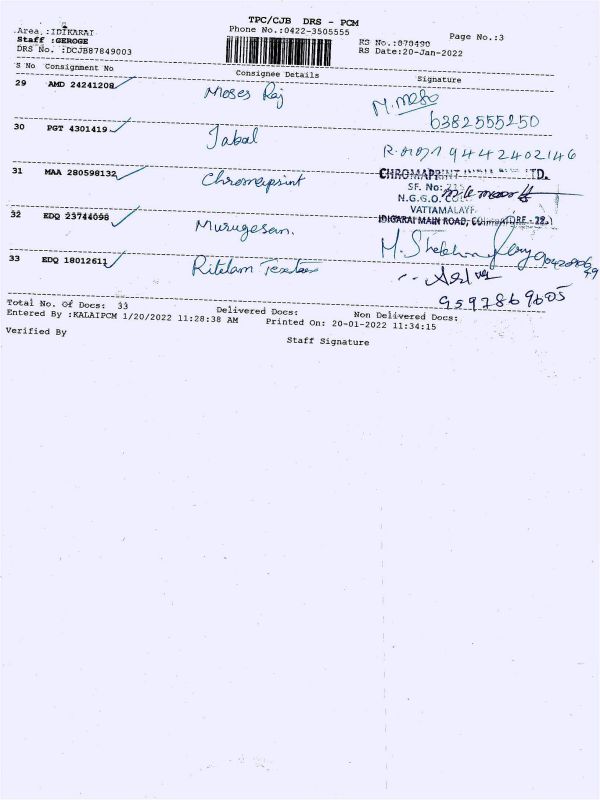 TPC/CJB DRS - PCM
Area :IDIKARAI Phone No.:0422-3505555 Page No.:3
Staff :GEROGE RS No.:878490
DRS No. :DCJB87849003 RS Date:20-Jan-2022
S No Consignment No Consignee Details Signature
29 AMD 24241208 Moses Raj M. Mose
6382555250
30 PGT 4301419 Jabal 9442402146
31 MAA 280598132 Chromaprint CHROMAPRINT LTD.
SF. No:
N.G.G.O.
VATTAMALAYP
IDIGARAI MAIN ROAD, COIMBATORE - 22.
32 EDQ 23744098 Murugesan. M.
33 EDQ 18012611 Ritelam
9597869605
Total No. Of Docs: 33 Delivered Docs: Non Delivered Docs:
Entered By :KALAIPCM 1/20/2022 11:28:38 AM Printed On: 20-01-2022 11:34:15
Verified By Staff Signature